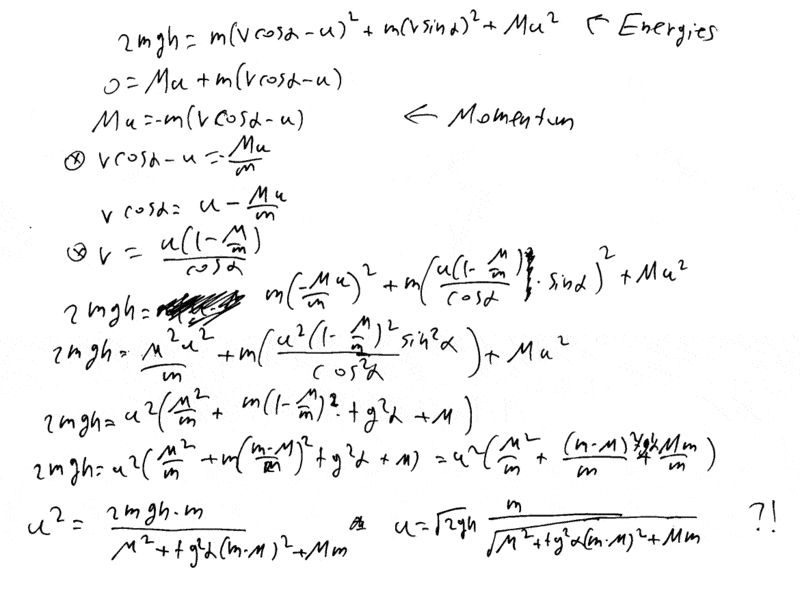 2mgh = m(vcosα - u)² + m(vsinα)² + Mu² ← Energies
0 = Mu + m(vcosα - u)
Mu = -m(vcosα - u) ← Momentum
⊗ vcosα - u = -Mu/m
vcosα = u - Mu/m
⊗ v = u(1 - M/m)/cosα
2mgh = m(-Mu/m)² + m(u(1 - M/m)/cosα · sinα)² + Mu²
2mgh = M²u²/m + m(u²(1 - M/m)² sin²α/cos²α) + Mu²
2mgh = u²(M²/m + m(1 - M/m)² · tg²α + M)
2mgh = u²(M²/m + m((m-M)/m)² tg²α + M) = u²(M²/m + (m-M)² tg²α/m + Mm/m)
u² = 2mgh·m/(M² + tg²α(m-M)² + Mm) u = √2gh m/√(M² + tg²α(m-M)² + Mm) ?!